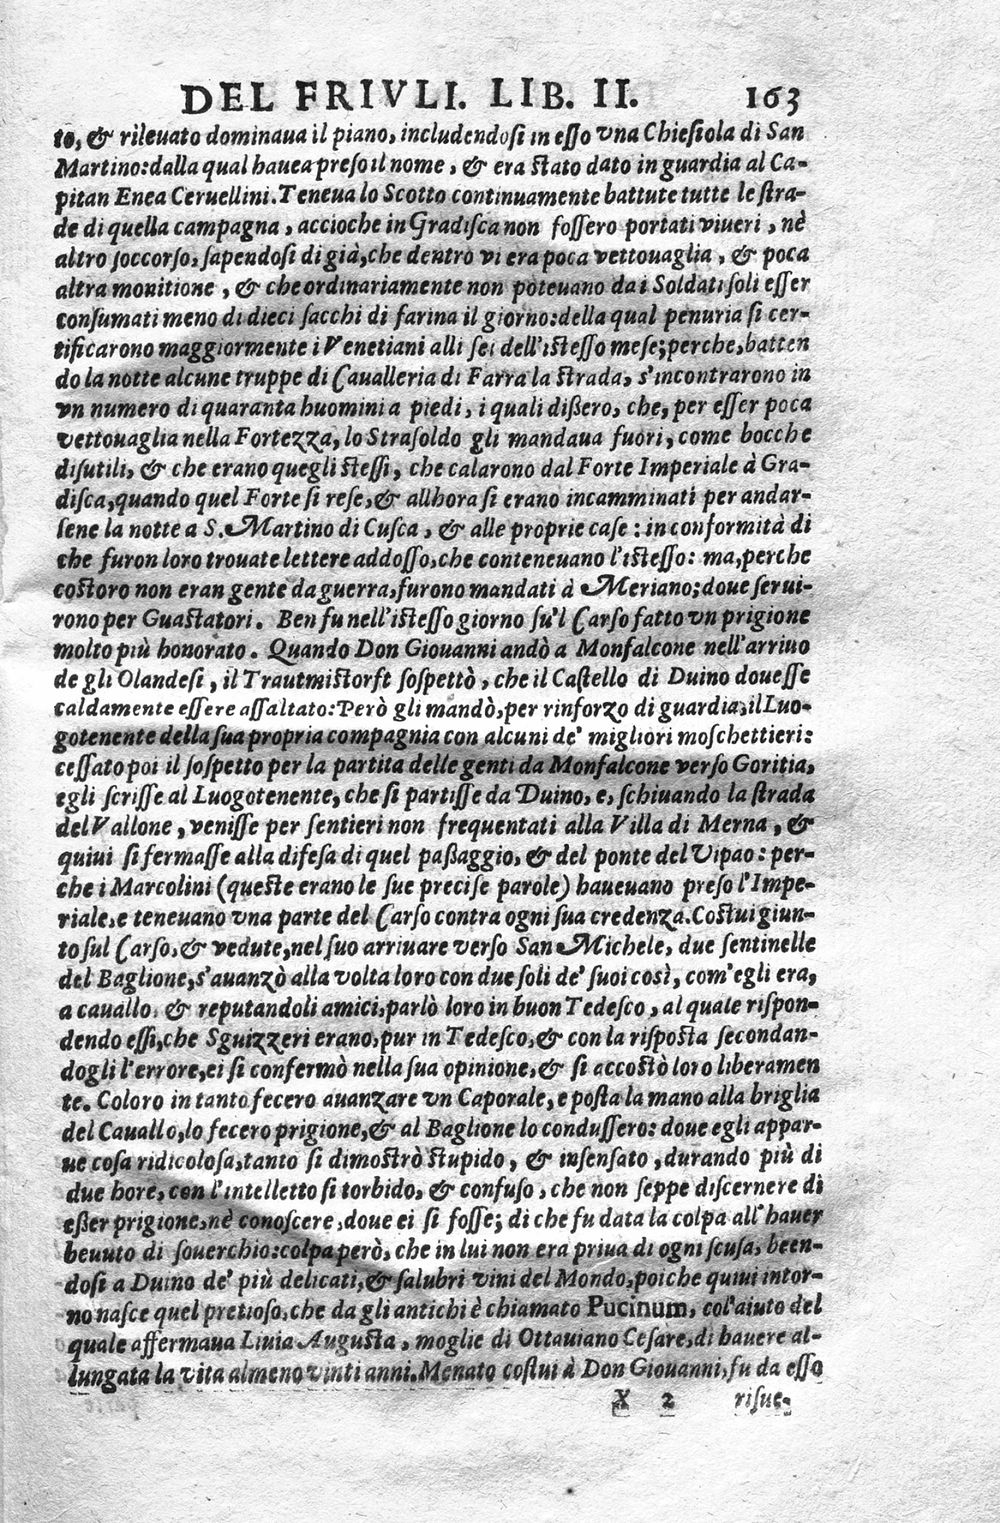 DEL FRIVLI. LIB. II. 163
to, & rileuato dominaua il piano, includendosi in esso vna Chiesiola di San
Martino: dalla qual hauea preso il nome, & era stato dato in guardia al Ca-
pitan Enea Ceruellini. Teneua lo Scotto continuamente battute tutte le stra-
de di quella campagna, accioche in Gradisca non fossero portati viueri, nè
altro soccorso, sapendosi di già, che dentro vi era poca vettouaglia, & poca
altra monitione, & che ordinariamente non poteuano da i Soldati soli esser
consumati meno di dieci sacchi di farina il giorno: della qual penuria si cer-
tificarono maggiormente i Venetiani alli sei dell'istesso mese; perche, batten
do la notte alcune truppe di Caualleria di Farra la strada, s'incontrarono in
vn numero di quaranta huomini a piedi, i quali dißero, che, per esser poca
vettouaglia nella Fortezza, lo Strasoldo gli mandaua fuori, come bocche
disutili, & che erano quegli stessi, che calarono dal Forte Imperiale à Gra-
disca, quando quel Forte si rese, & allhora si erano incamminati per andar-
sene la notte a S. Martino di Cusca, & alle proprie case: in conformità di
che furon loro trouate lettere addosso, che conteneuano l'istesso: ma, perche
costoro non eran gente da guerra, furono mandati à Meriano; doue serui-
rono per Guastatori. Ben fu nell'istesso giorno su'l Carso fatto vn prigione
molto più honorato. Quando Don Giouanni andò a Monfalcone nell'arriuo
de gli Olandesi, il Trautmistorft sospettò, che il Castello di Duino douesse
caldamente essere assaltato: Però gli mandò, per rinforzo di guardia, il Luo-
gotenente della sua propria compagnia con alcuni de' migliori moschettieri:
cessato poi il sospetto per la partita delle genti da Monfalcone verso Goritia,
egli scrisse al Luogotenente, che si partisse da Duino, e, schiuando la strada
del Vallone, venisse per sentieri non frequentati alla Villa di Merna, &
quiui si fermasse alla difesa di quel paßaggio, & del ponte del Vipao: per-
che i Marcolini (queste erano le sue precise parole) haueuano preso l'Impe-
riale, e teneuano vna parte del Carso contra ogni sua credenza. Costui giun-
to sul Carso, & vedute, nel suo arriuare verso San Michele, due sentinelle
del Baglione, s'auanzò alla volta loro con due soli de' suoi così, com'egli era,
a cauallo, & reputandoli amici, parlò loro in buon Tedesco, al quale rispon-
dendo essi, che Sguizzeri erano, pur in Tedesco, & con la risposta secondan-
dogli l'errore, ei si confermò nella sua opinione, & si accostò loro liberamen
te. Coloro in tanto fecero auanzare vn Caporale, e posta la mano alla briglia
del Cauallo, lo fecero prigione, & al Baglione lo condussero: doue egli appar-
ue cosa ridicolosa, tanto si dimostrò stupido, & insensato, durando più di
due hore, con l'intelletto si torbido, & confuso, che non seppe discernere di
eßer prigione, nè conoscere, doue ei si fosse; di che fu data la colpa all'hauer
beuuto di souerchio: colpa però, che in lui non era priua di ogni scusa, been-
dosi a Duino de' più delicati, & salubri vini del Mondo, poiche quiui intor-
no nasce quel pretioso, che da gli antichi è chiamato Pucinum, col'aiuto del
quale affermaua Liuia Augusta, moglie di Ottauiano Cesare, di hauere al-
lungata la vita almeno vinti anni. Menato costui à Don Giouanni, fu da esso
X 2 risue-